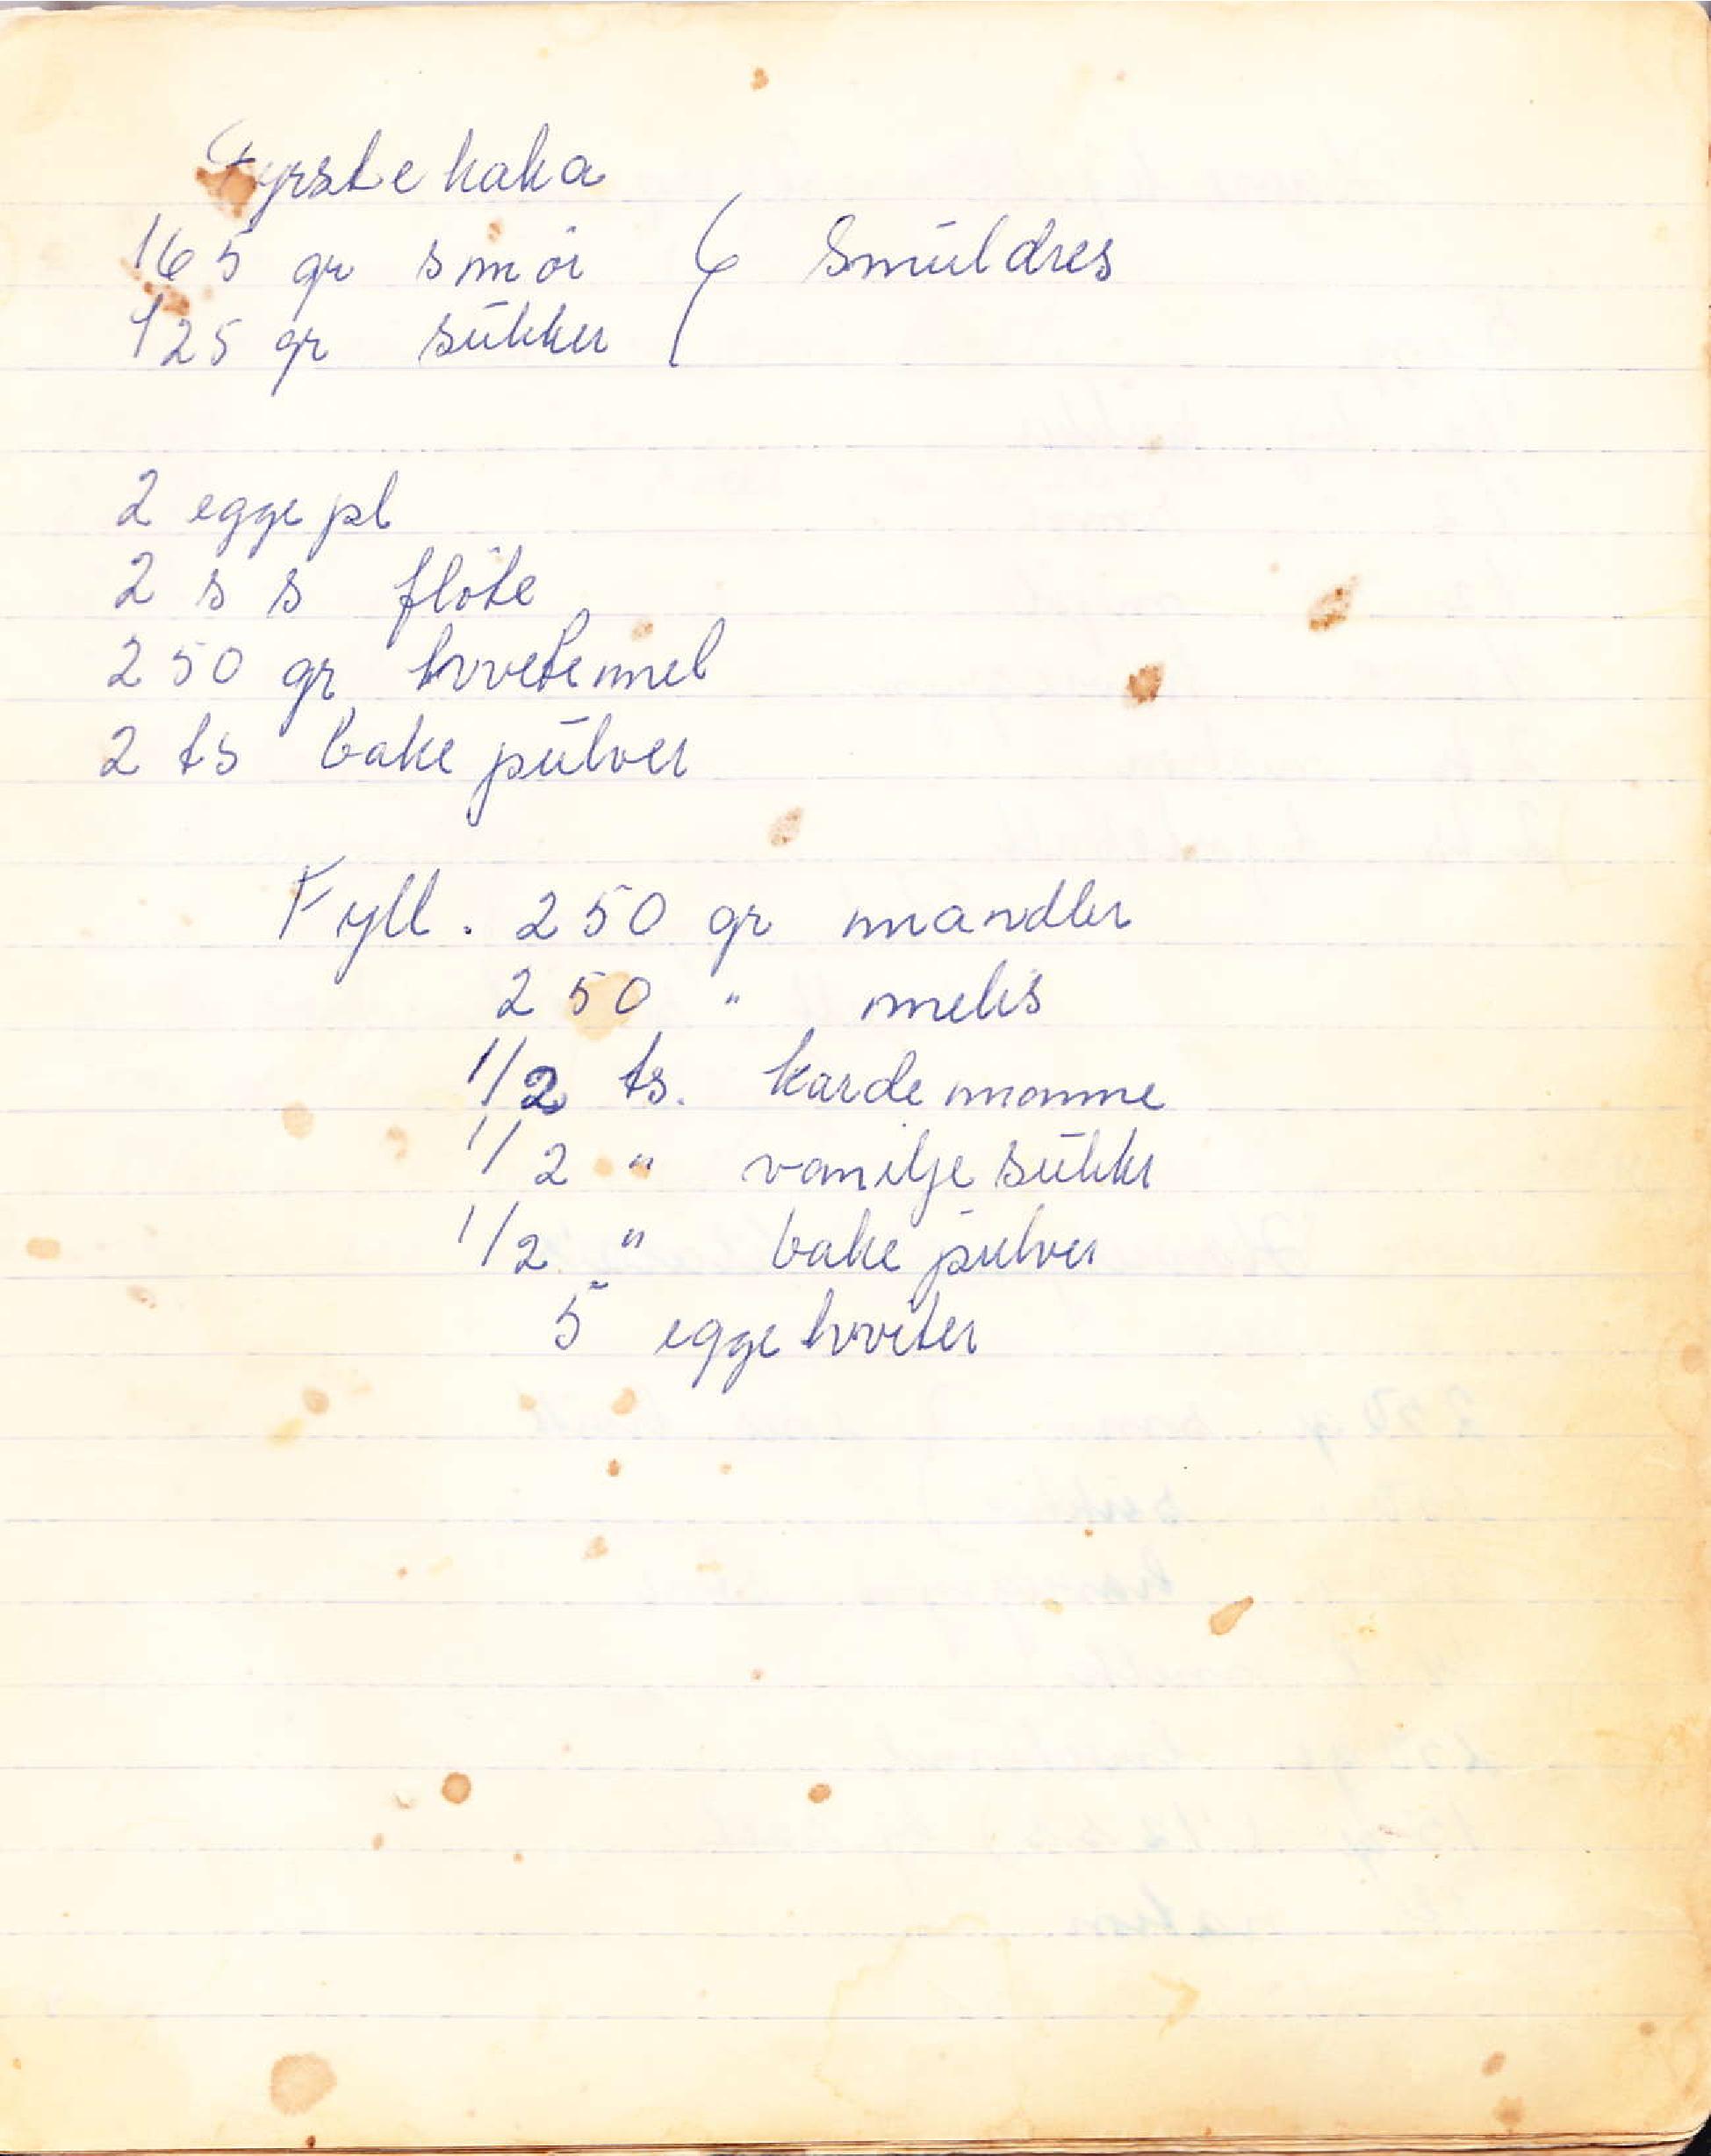 Fyrstekaka
165 gr smör { Smuldres
125 gr sukker
2 eggepl
2 s s flöte
250 gr hvetemel
2 ts bakepulver
Fyll. 250 gr mandler
250 " melis
1/2 ts. kardemomme
1/2 " vaniljesukker
1/2 " bakepulver
5 eggehviter